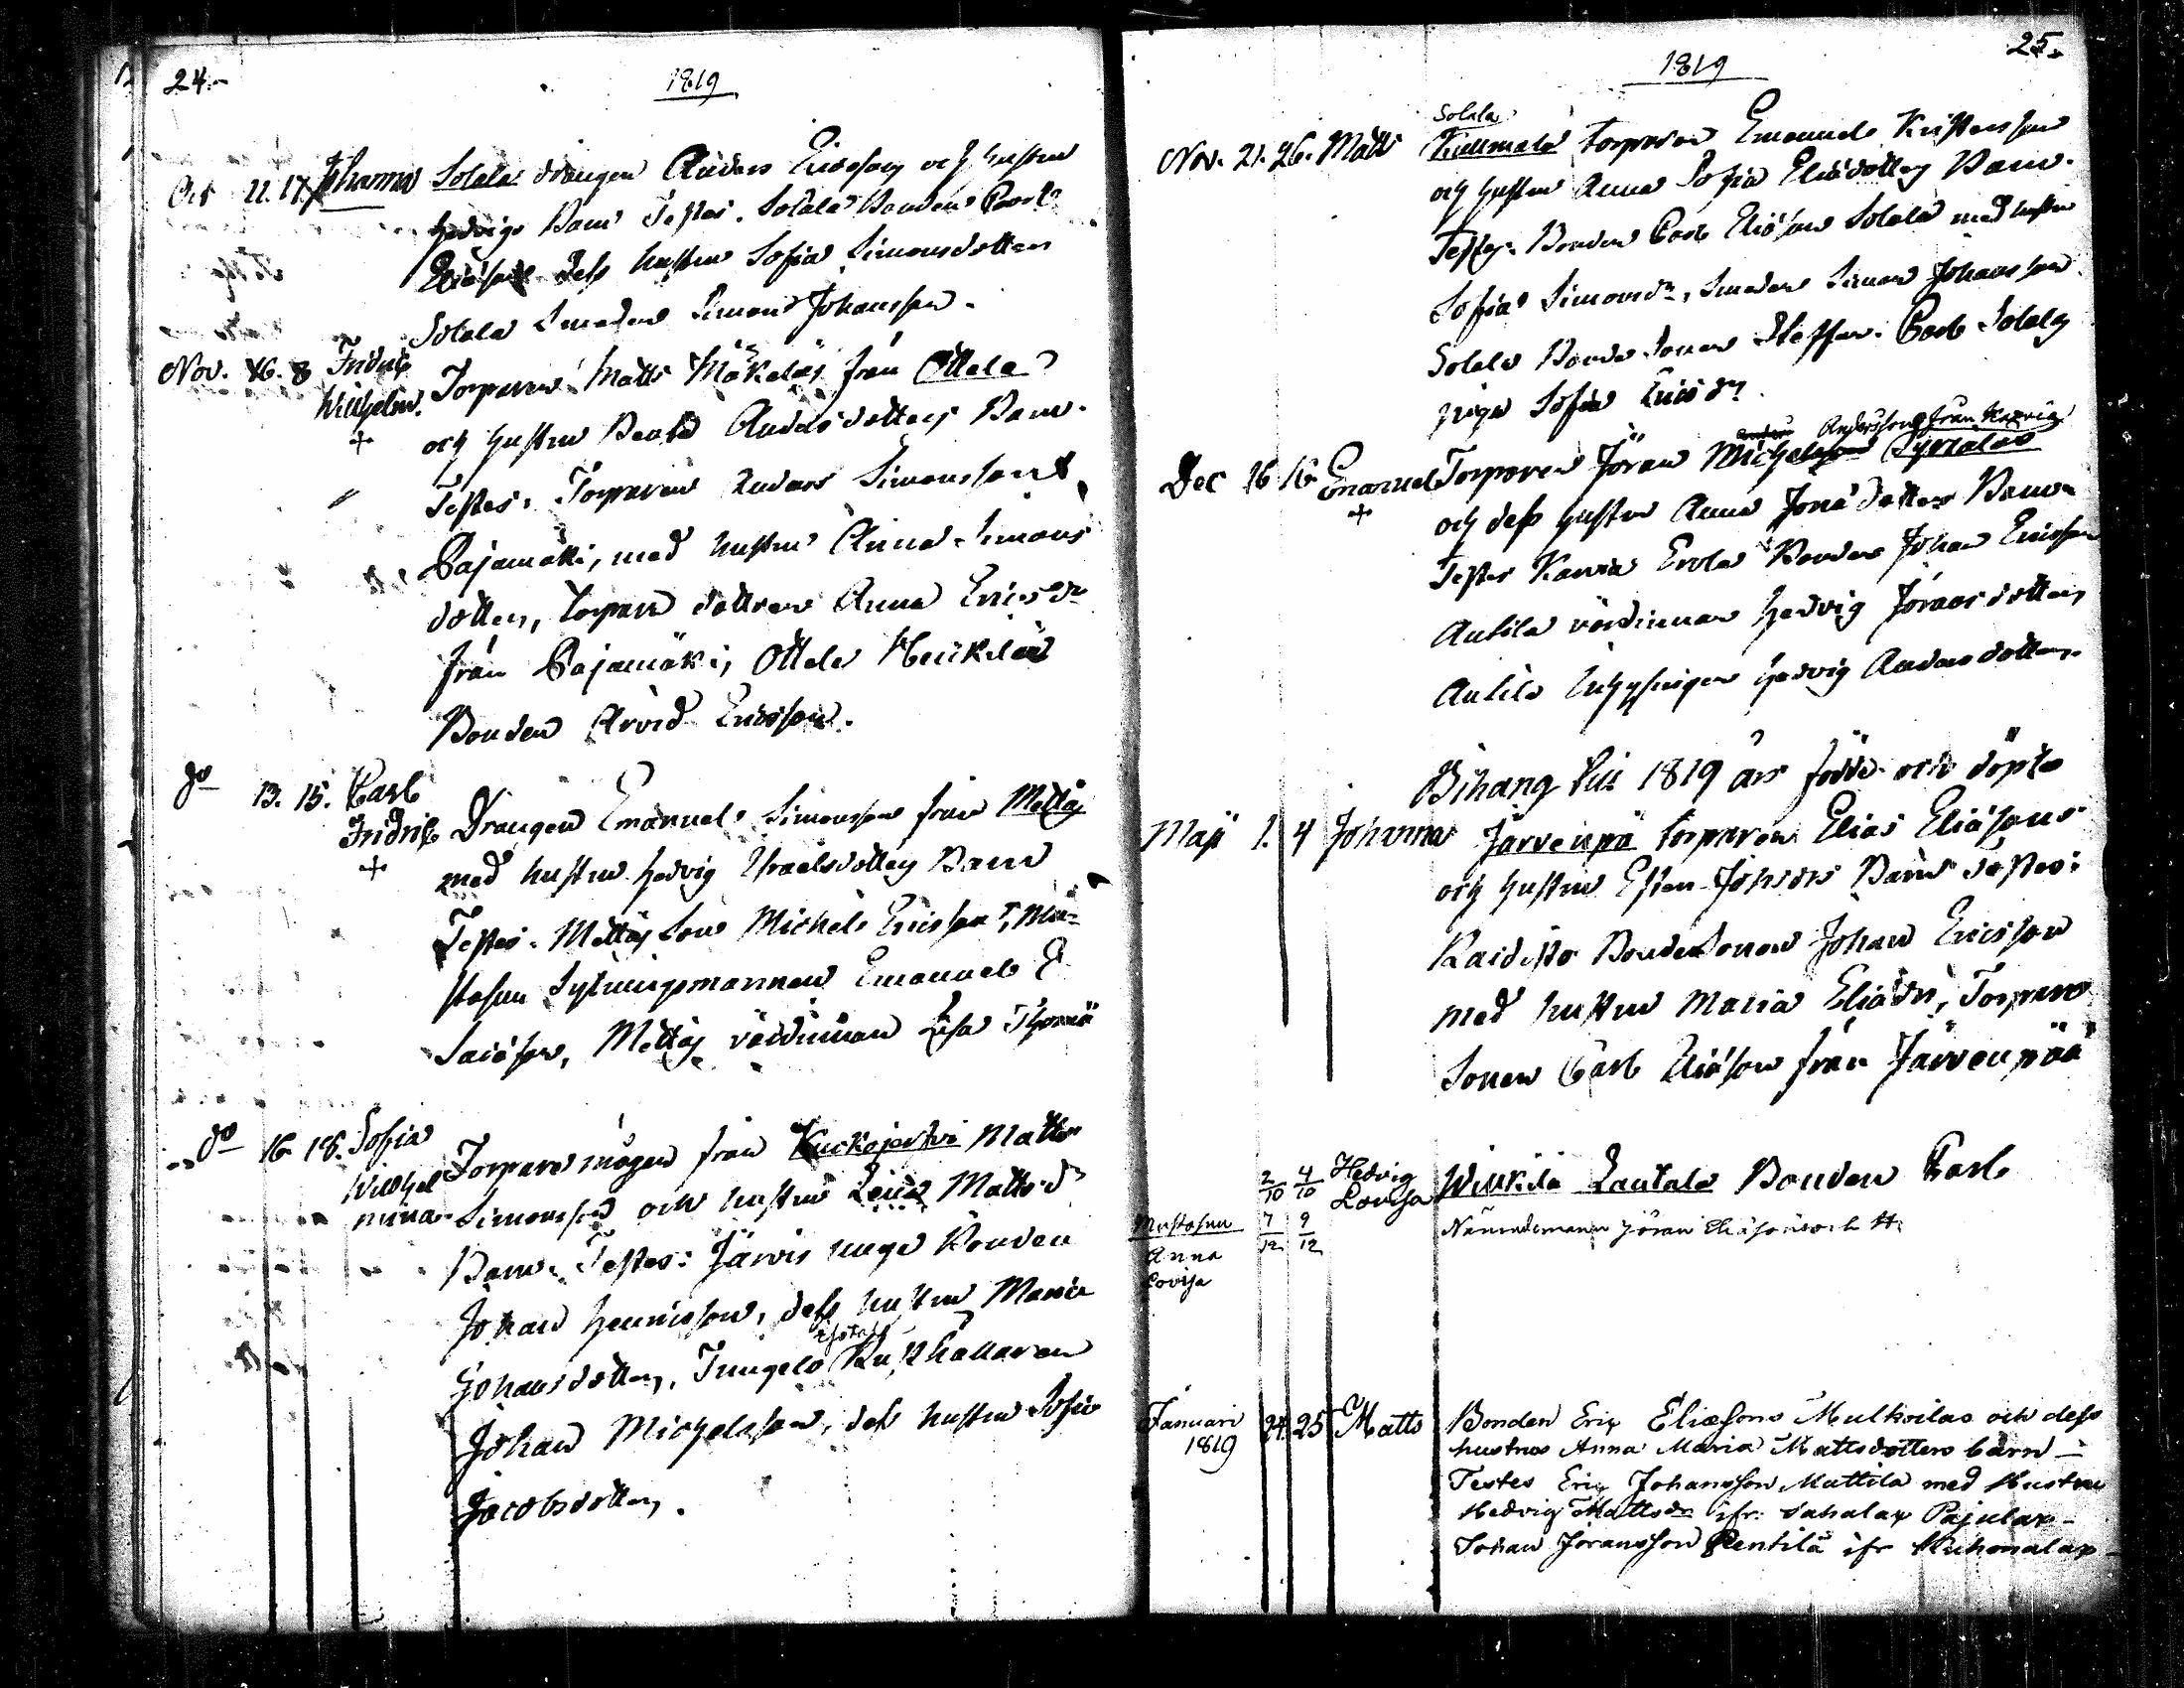 24.
1819
Oct 11. 17. Johanna Solala drängen Anders Ericsson och hustru
Hedvigs Barn Testes. Solala Bonden Carl
Eliäson dess hustru Sofia Simonsdotter
Solala Smeden Simon Johansson.
Nov. 6. 8 Fridric Wilhelm. + Torparen Matts Mäkeläs från Ottala
och hustrus Beata Andersdotters Barn.
Testes. Torparen Anders Simonsson
Pajamäki, med hustru Anna Simons
dotter, torpare dottren Anna Ericsdr
från Pajamäki, Ottala Heickilä
Bonden Arvid Ericsson.
do 13. 15. Carl Fridric + Drängen Emanuel Simonsson från Mettäj
med hustru Hedvig Israelsdotters Barn
Testes. Mettäj Son Michel Ericsson, Mu-
stasuu Sytningsmannen Emanuel E
Saiäson, Mettäj värdinnan Lisa Thomä
do 16. 18. Sofia Wilhelmina Torpare mågen från Kuckojerfvi Matts
Simonsson och hustru Lena Mattsdr
Barn. Testes: Järvis unge Bonden
Johan Henricsson, dess hustru Maria
Johansdotter, Jungelä Rusthållaren
Johan Michelsson, dess hustru Sofia
Jacobsdotter.
25.
1819
Solala
Nov. 21. 26. Matts torparen Emanuel Kristersson
och hustru Anna Sofia Eliädotters Barn.
Testes. Bonden Carl Eliäson Solala med hustru
Sofia Simonsdr, Smeden Simon Johansson
Solala Bonde Sonen Steffan Carl Solala
pigan Sofia Ericsdr.
Anderssons från Karvia
Dec 16 16 Emanuel + Torparen Jöran Michelsson
och dess hustru Anna Jonädotters Barn
Testes Karvia Erola Bonden Johan Ericsson
Antila värdinnan Hedvig Jöransdotter,
Antila Inhysingen Hedvig Andersdotter.
Bihang till 1819 års födde och döpte
Maji 1. 4 Johanna Järvenpä torparen Elias Eliäsons
och hustrus Ester Johsdrs Barn Testes:
Raidisto Bonde Sonen Johan Ericsson
med hustru Maria Eliädr, Torpare
Sonen Carl Eliäson från Järvenpää
2/10 4/10 Hedvig Lovisa Wikilä Lautala Bonden Carl
Mustasuu Anna Lovisa 7/12 9/12 Nämndemann Jöran Eliäsons och H.
Januari 1819 24. 25 Matts Bonden Eric Eliæsons Mulkoilas och dess
hustrus Anna Maria Mattsdotters barn—
Testes Eric Johansson Mattila med Hustru
Hedvig Mattsdr ifr: Sahalax Pajulax—
Johan Jöransson Pentilä ifr Kuhmalax—